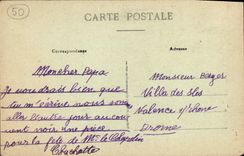 50
CARTE POSTALE
Correspondance
Adresse
Mon cher Papa
Je voudrais bien que
tu m'écrive nous som
aller l'autre jour au cou
vent voir une pièce
pour la fête de Mr le
Charlotte
Monsieur Berger
Villa des Iles
Valence s/ Rhone
Drome